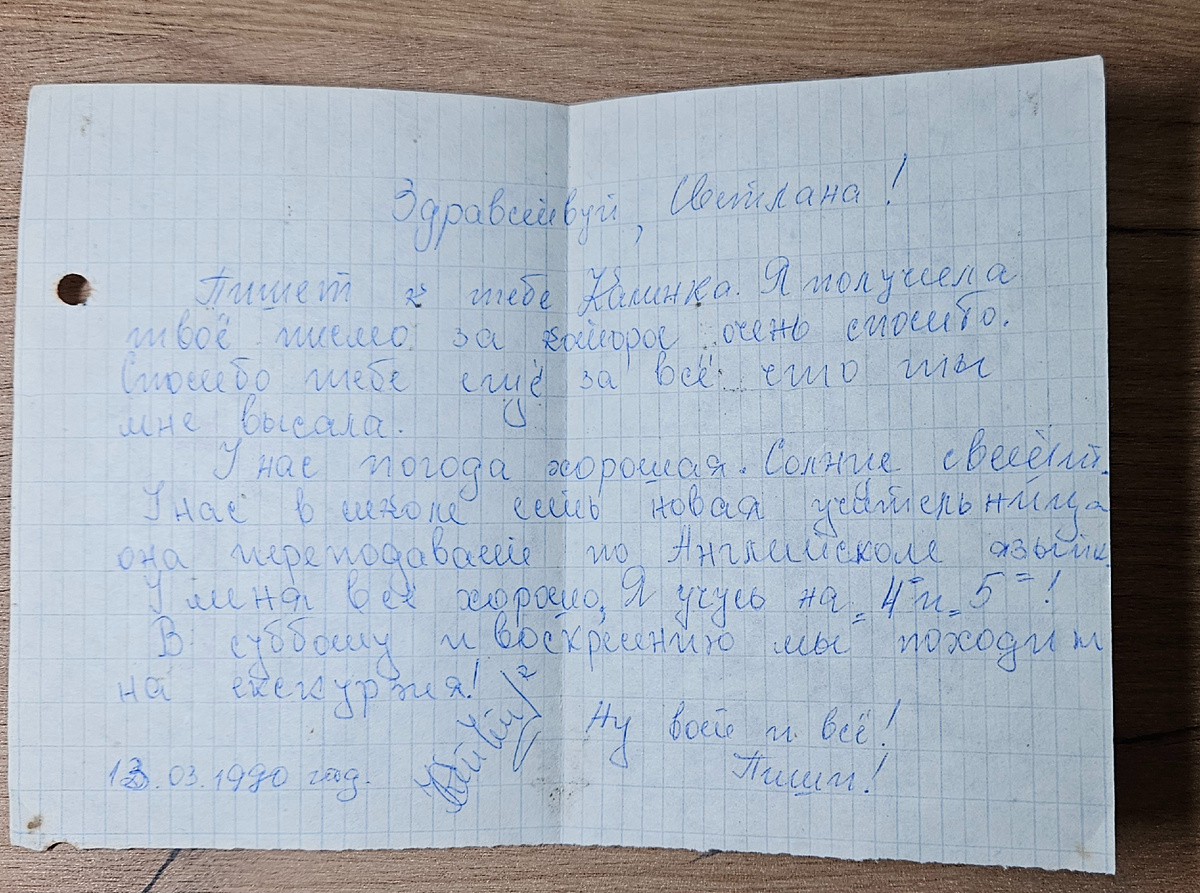 Здравствуй, Светлана!
Пишет к тебе Калинка. Я получила
твоё писмо за которое очень спосибо.
Спосибо тебе ещё за всё что ты
мне высала.
У нас погода хорошая. Солнце светит.
У нас в школе есть новая учительница
она переподавает по Английском языик
У меня всё хорошо, Я учусь на "4" и "5"!
В субботу и воскресению мы походим
на екскурзия!
Ну вот и всё!
13.03.1990 год.
Пиши!